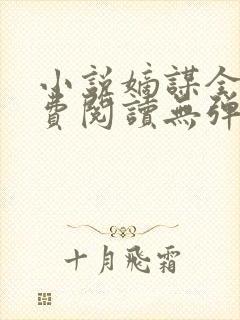 小說嫡謀全
費閱讀無彈
十月飛霜